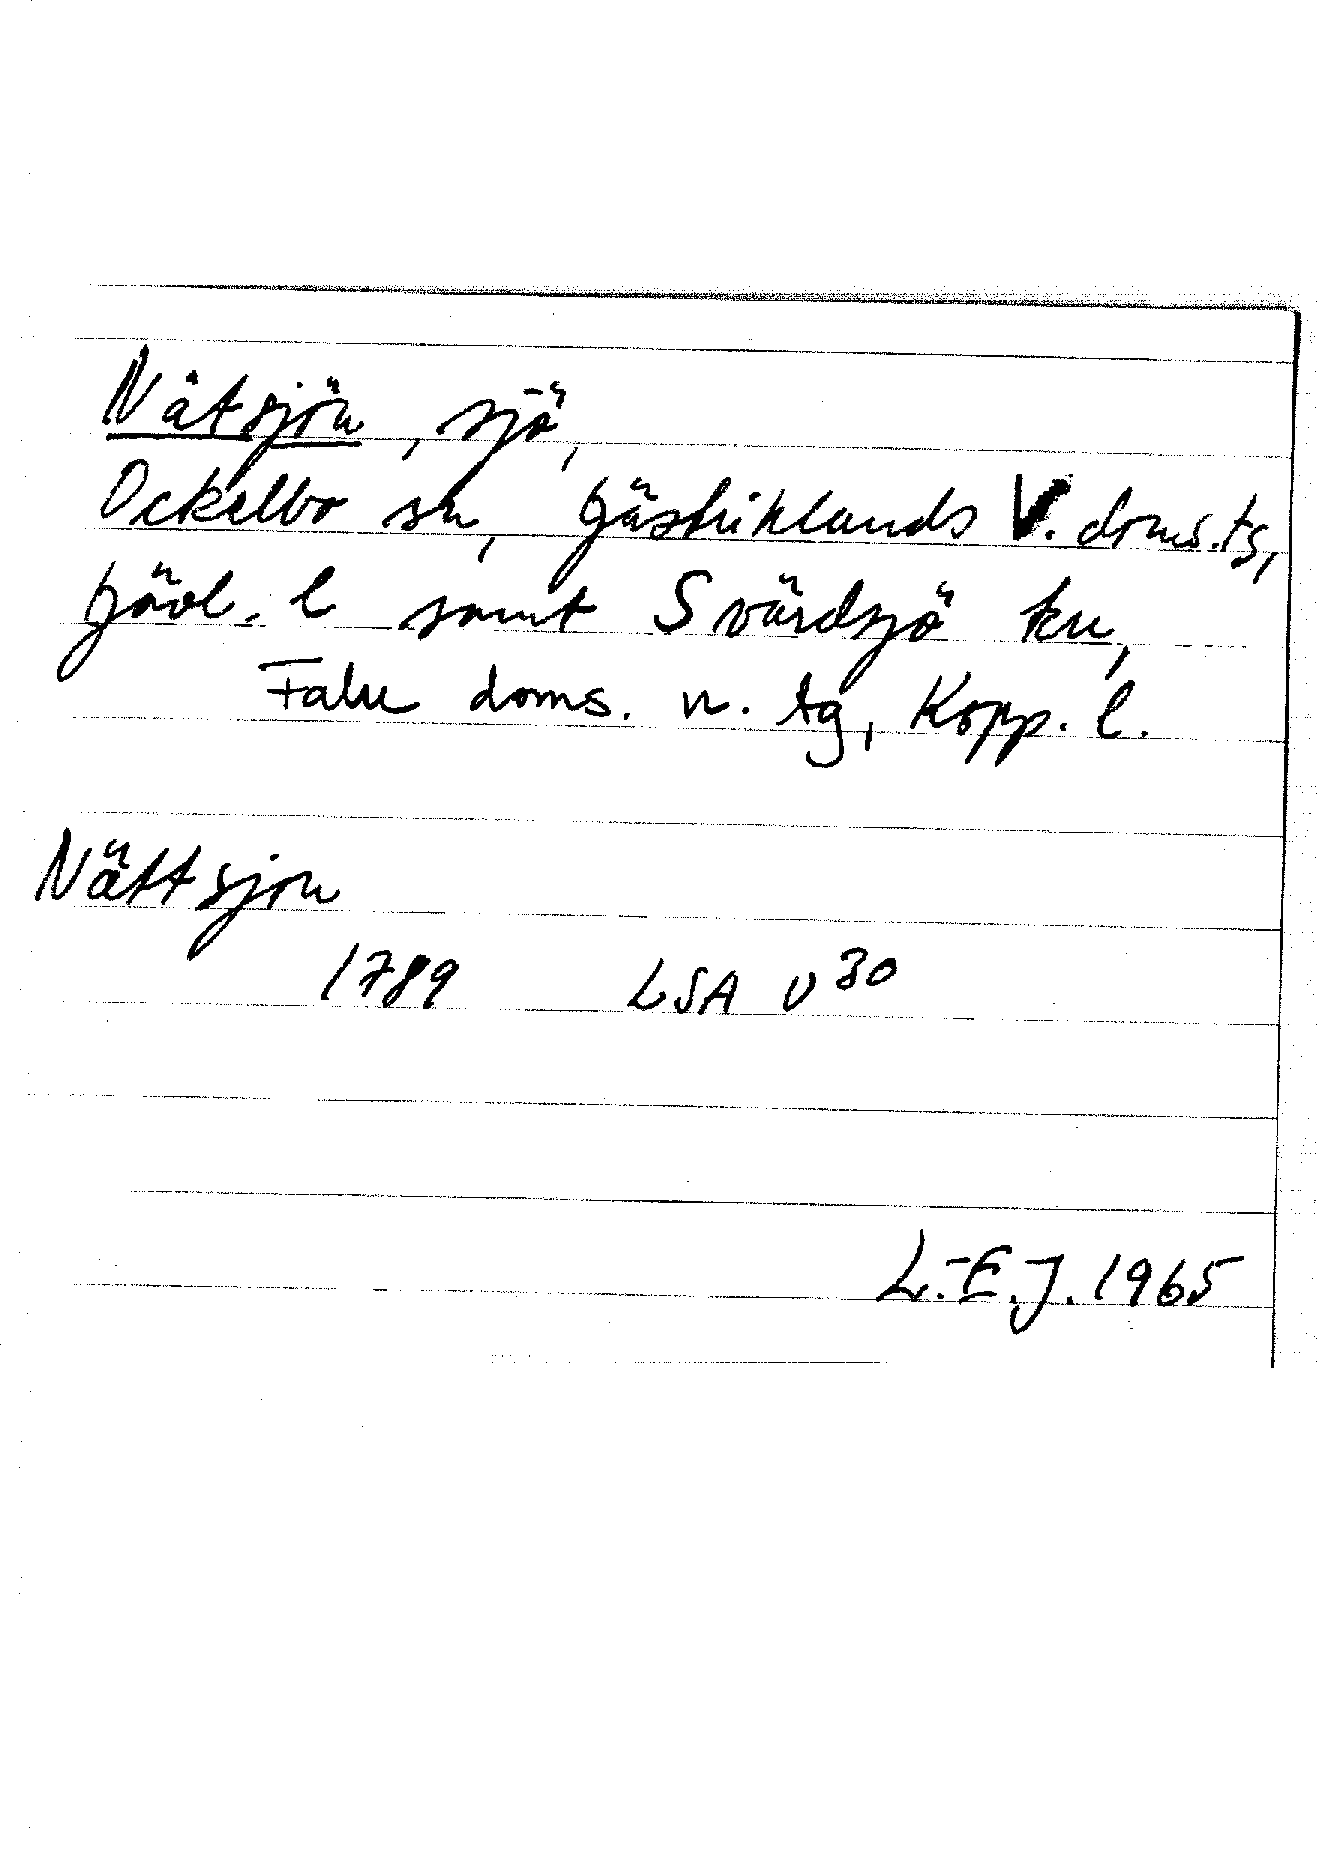 Nätsjön, sjö,
Ockelbo sn, Gästriklands V. doms.tg,
Gävl. l samt Svärdsjö kn,
Falu doms. n. tg, Kopp. l.
Nättsjön
1789 LSA U 30
L.-E.J. 1965